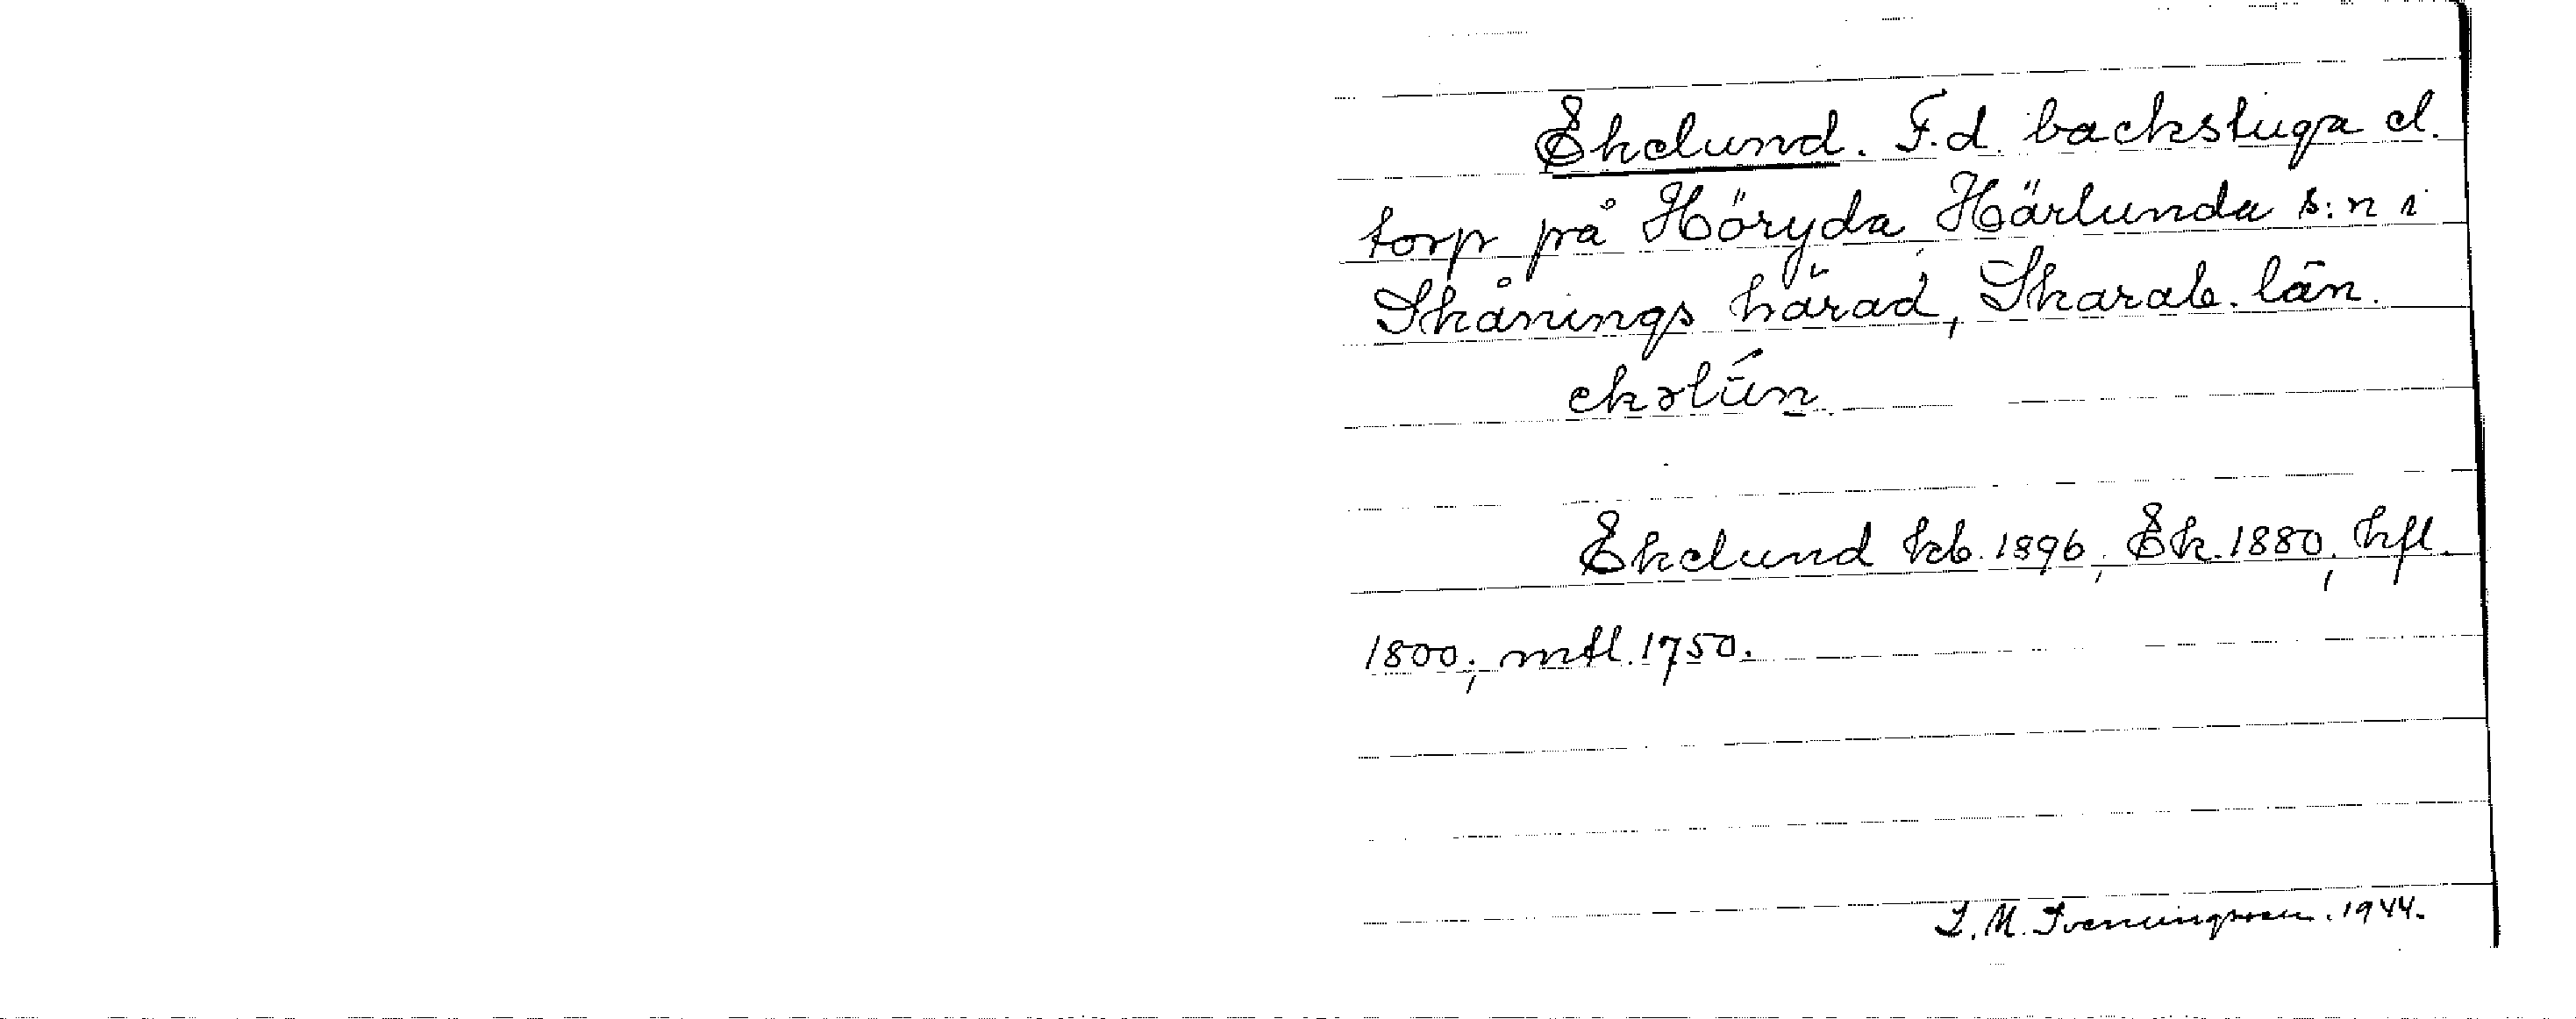 Ekelund. F.d. backstuga el.
torp på Höryda, Härlunda s:n i
Skånings härad, Skarab. län.
ekəlún
Ekelund kb. 1896, Ek. 1880, hfl.
1800; mtl. 1750.
S. M. Svenungsson. 1944.